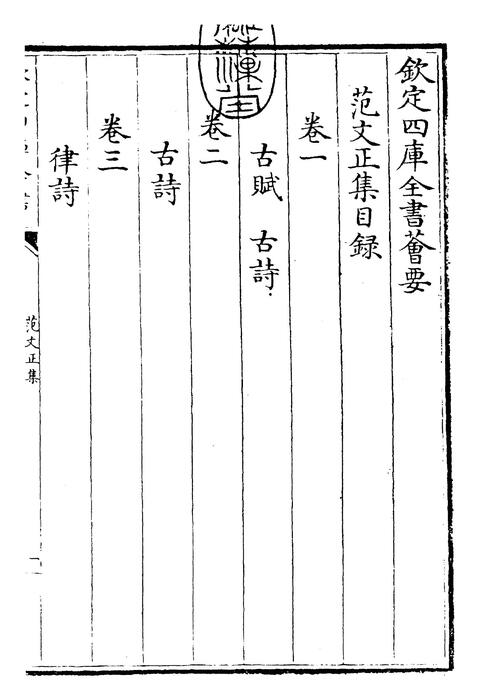 欽定四庫全書薈要
范文正集目録
卷一
古賦　古詩
卷二
古詩
卷三
律詩
范文正集